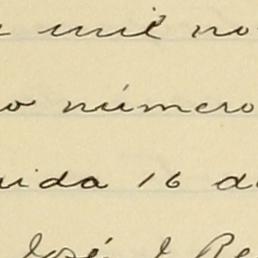 mil no
o número
uida 16 de
José J. Re